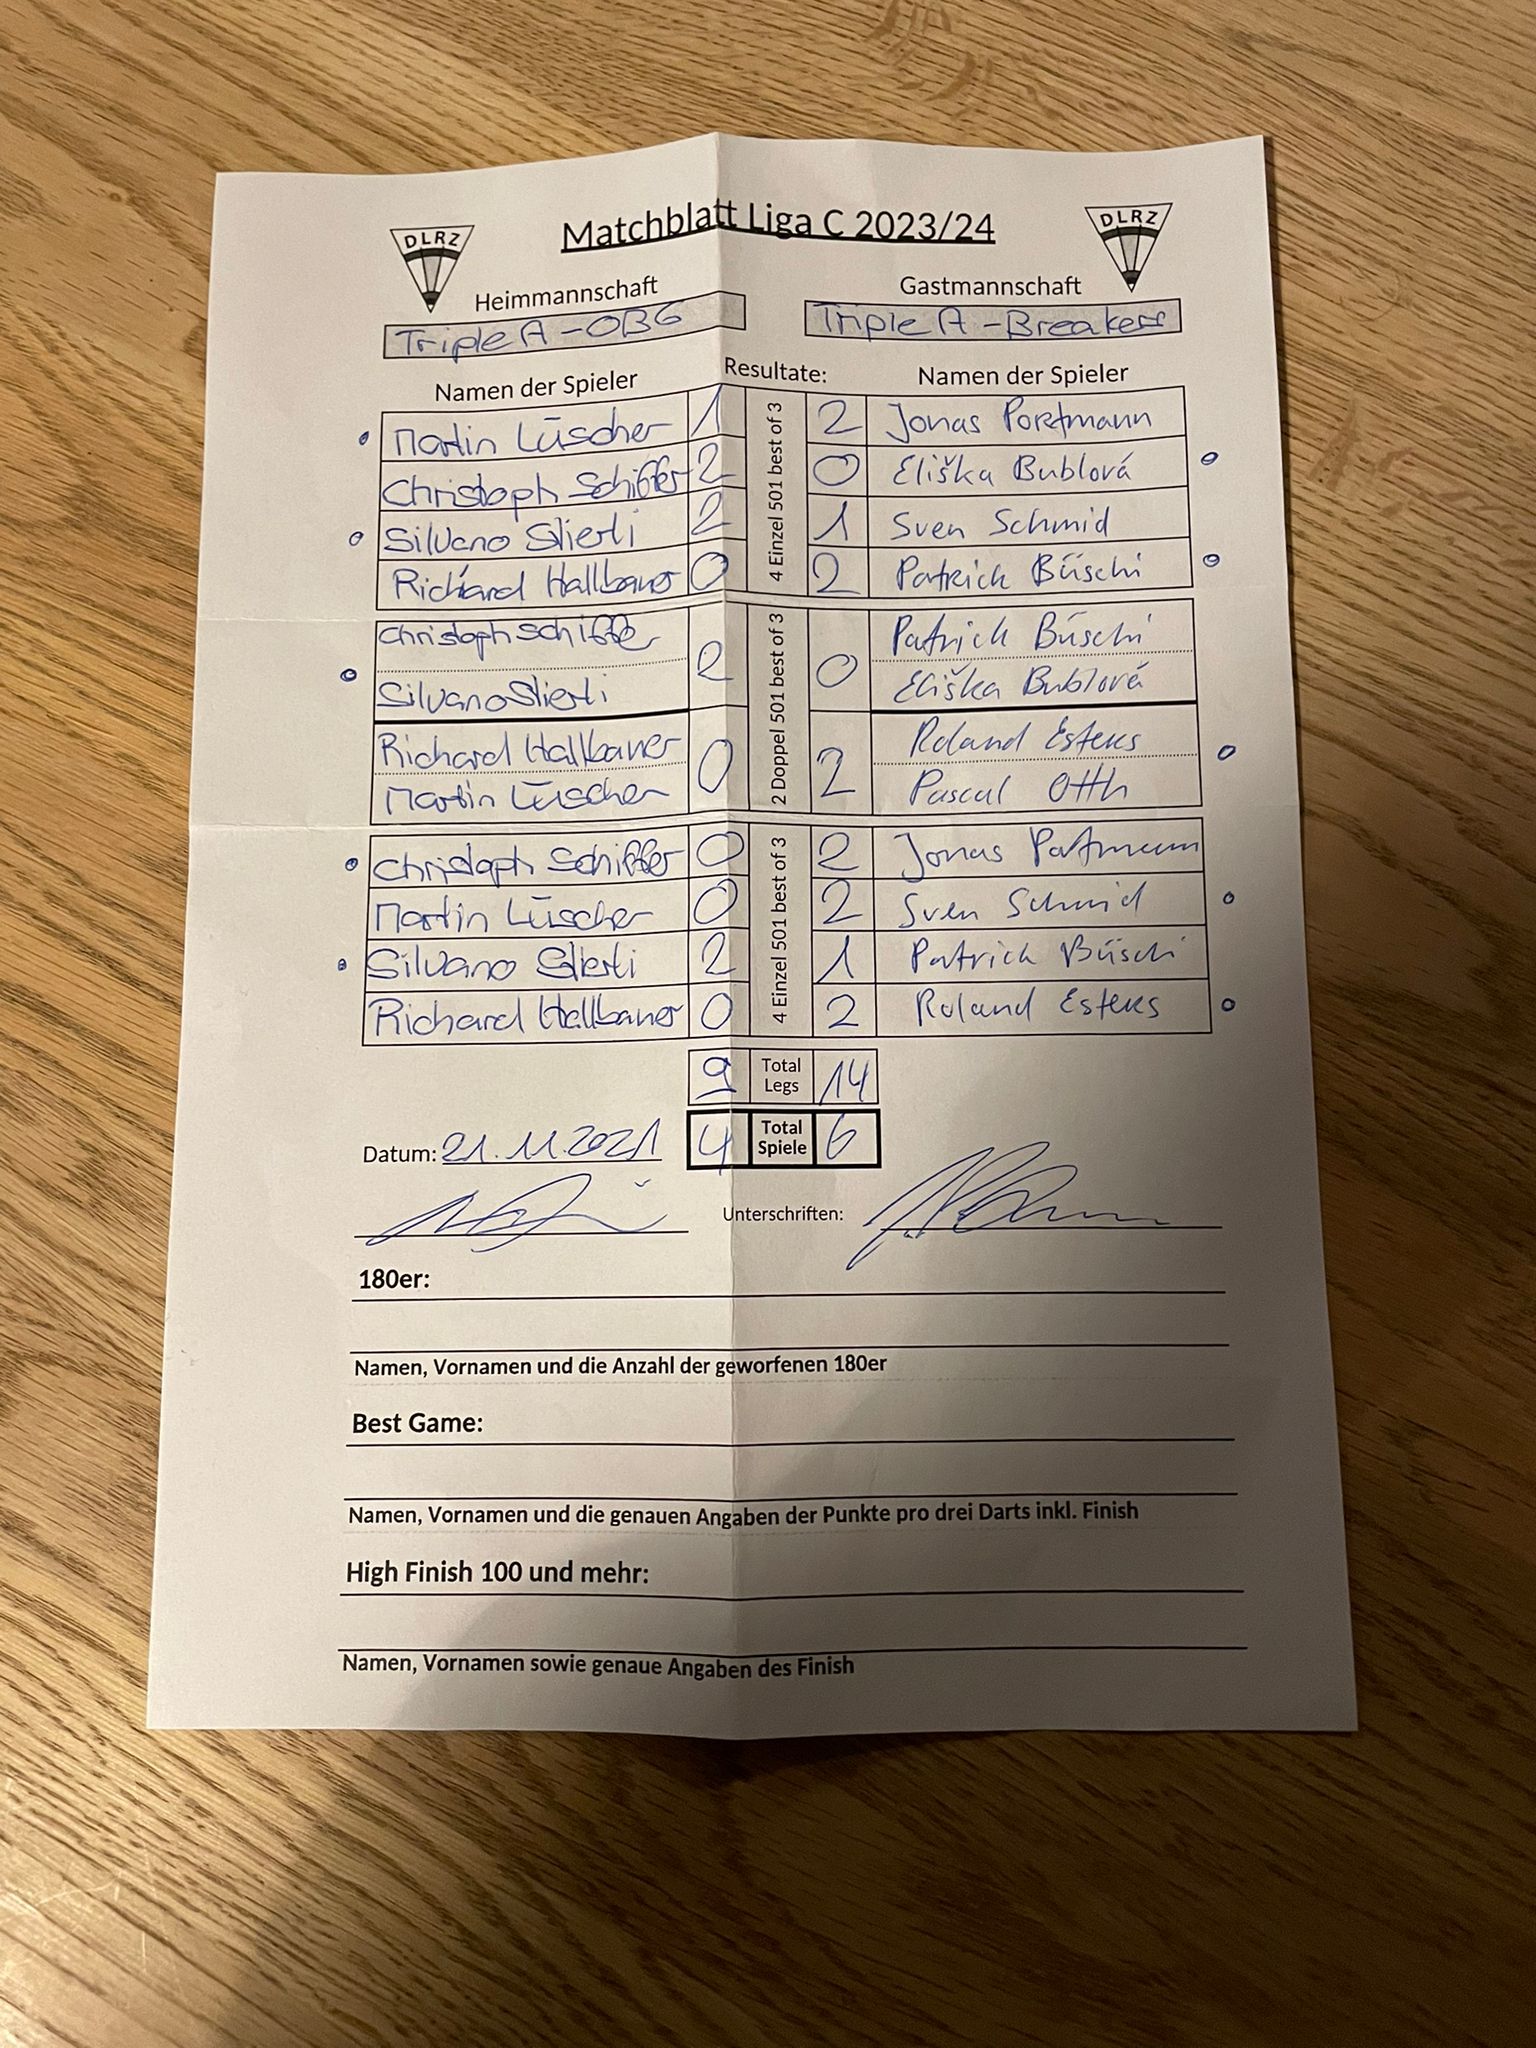 Matchblatt Liga C 2023/24
DLRZ DLRZ
Heimmannschaft Gastmannschaft
Triple A - OBG Triple A - Breakers
Namen der Spieler Resultate: Namen der Spieler
4 Einzel 501 best of 3
Martin Lüscher 1 2 Jonas Portmann
Christoph Schiffer 2 0 Eliška Bublová
Silvano Stierli 2 1 Sven Schmid
Richard Hallbauer 0 2 Patrick Büschi
2 Doppel 501 best of 3
Christoph Schiffer Patrick Büschi
2 0
Silvano Stierli Eliška Bublová
Richard Hallbauer Roland Esteus
0 2
Martin Lüscher Pascal Otth
4 Einzel 501 best of 3
Christoph Schiffer 0 2 Jonas Portmann
Martin Lüscher 0 2 Sven Schmid
Silvano Stierli 2 1 Patrick Büschi
Richard Hallbauer 0 2 Roland Esteus
9 Total Legs 14
Datum: 21.11.2021 4 Total Spiele 6
Unterschriften:
180er:
Namen, Vornamen und die Anzahl der geworfenen 180er
Best Game:
Namen, Vornamen und die genauen Angaben der Punkte pro drei Darts inkl. Finish
High Finish 100 und mehr:
Namen, Vornamen sowie genaue Angaben des Finish